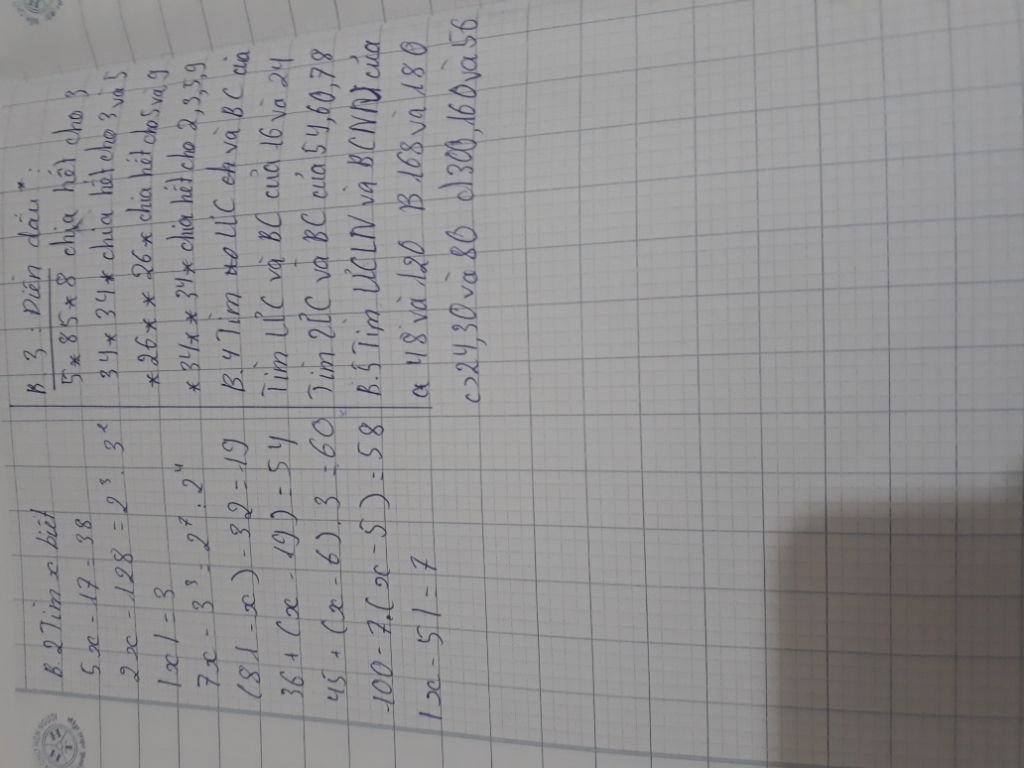 B 2 Tìm x biết
5x - 17 = 38
2x - 128 = 2³ . 3²
|x| = 3
7x - 3³ = 2⁷ : 2⁴
(81 - x) - 32 = 19
36 + (x - 19) = 54
45 + (x - 6) . 3 = 60
100 - 7.(x - 5) = 58
|x - 5| = 7
B 3 : Điền dấu * :
5*85*8 chia hết cho 3
34*34* chia hết cho 3 và 5
*26**26* chia hết cho 5 và 9
*34**34* chia hết cho 2,3,5,9
B. 4 Tìm ƯC ch và BC của
Tìm ƯC và BC của 16 và 24
Tìm ƯC và BC của 54,60,78
B.5 Tìm ƯCLN và BCNN của
a 48 và 120 B 168 và 180
c) 24,30 và 80 d) 300,160 và 56